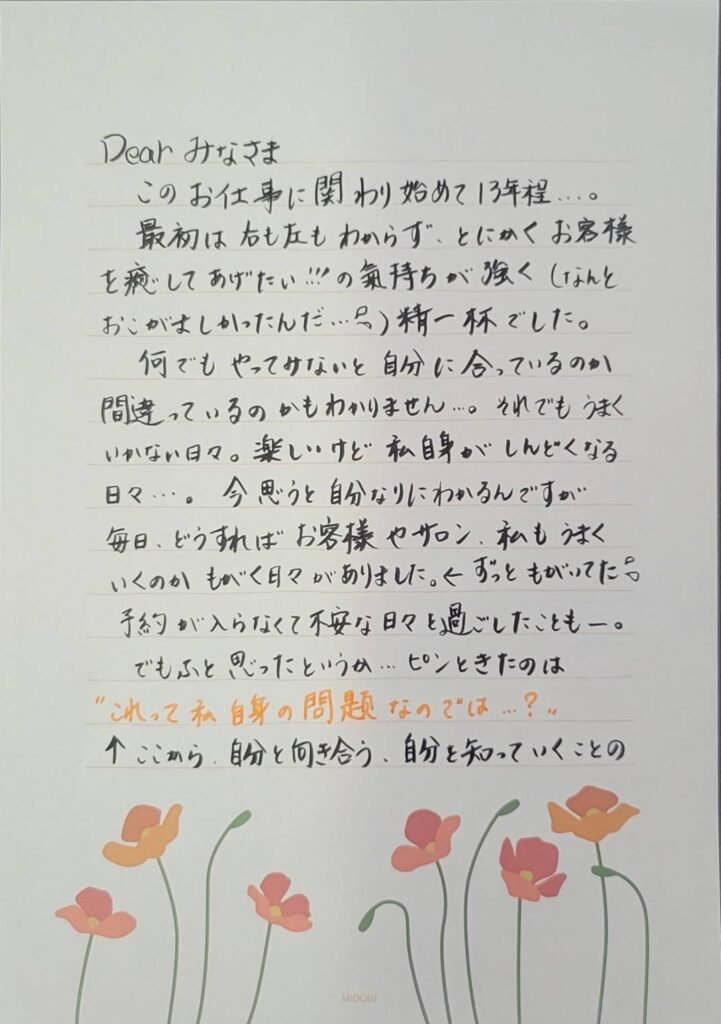 Dear みなさま
このお仕事に関わり始めて13年程…。
最初は右も左もわからず、とにかくお客様
を癒してあげたい!!!の氣持ちが強く(なんと
おこがましかったんだ…)精一杯でした。
何でもやってみないと自分に合っているのか
間違っているのかもわかりません…。それでもうまく
いかない日々。楽しいけど私自身がしんどくなる
日々…。今思うと自分なりにわかるんですが
毎日、どうすればお客様やサロン、私もうまく
いくのかもがく日々がありました。←ずっともがいてた
予約が入らなくて不安な日々を過ごしたこともー。
でもふと思ったというか…ピンときたのは
"これって私自身の問題なのでは…?"
↑ここから、自分と向き合う、自分を知っていくことの
MIDORI